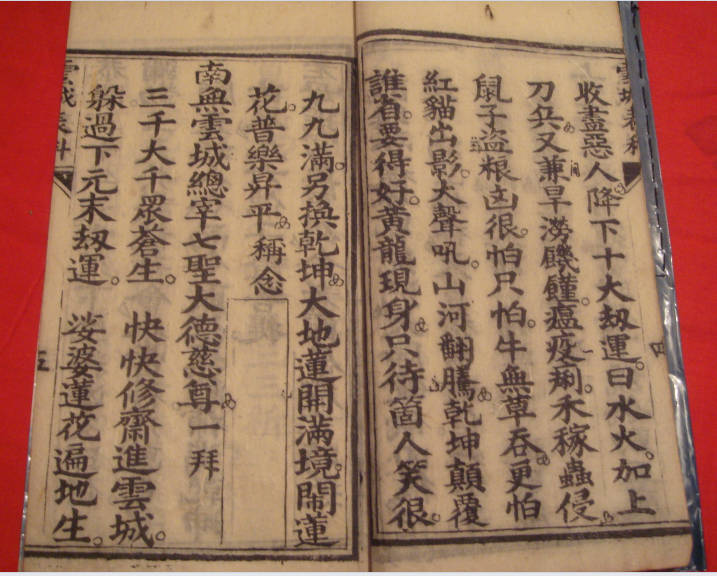 雲城表科
四
收盡惡人降下十大刼運。曰水火。加上
刀兵又兼旱澇饑饉。瘟疫痢。禾稼蟲侵
鼠子盗粮凶很。怕只怕。牛無草吞。更怕
紅貓出影。大聲吼。山河翻騰乾坤顛覆
誰省。要得好。黃龍現身。只待箇人笑很。
九九滿。另換乾坤。大地蓮開滿境。閙蓮
花。普樂昇平。稱念
南無雲城總宰七聖大德慈尊。一拜
三千大千眾蒼生。 快快修齋進雲城。
躲過下元末刼運。 娑婆蓮花遍地生。
雲城表科
五